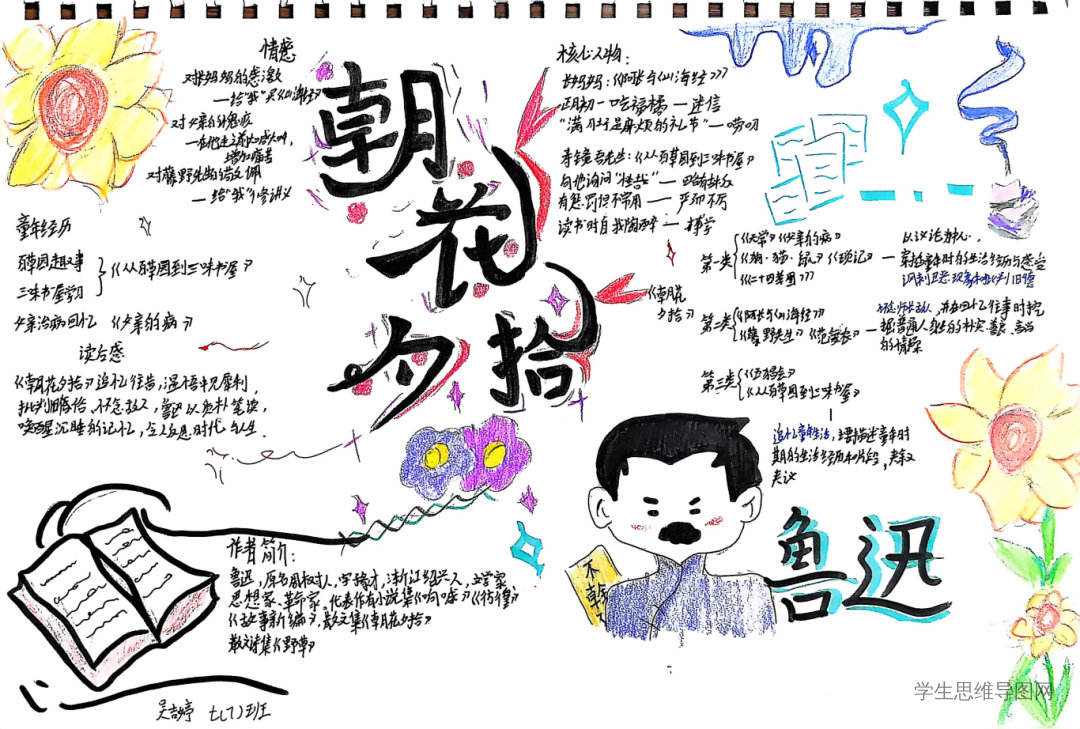 情感
对长妈妈的感激
—给"我"买《山海经》
对父亲的愧疚
增加痛苦
对藤野先生的
—给"我"修讲义
童年经历
百草园趣事
三味书屋学习
《从百草园到三味书屋》
父亲治病回忆 《父亲的病》
读后感
《朝花夕拾》追忆往昔，温情中见犀利，
批判
唤醒沉睡的记忆，令人反思时代与人生.
朝花夕拾
核心人物：
长妈妈：《阿长与山海经》
正月初一吃福橘 — 迷信
"满肚子是麻烦的礼节" — 唠叨
寿镜吾先生：《从百草园到三味书屋》
向他询问"怪哉" —
有戒尺但不常用 — 严而不厉
读书时自我陶醉 — 博学
《朝花
夕拾》
第一类
《父亲的病》
《狗·猫·鼠》《琐记》
《二十四孝图》
以议论为核心，
穿插童年时的生活经历与感受
第二类
《阿长与山海经》
《藤野先生》《范爱农》
在回忆往事时挖
掘普通人身上的朴实、善良
的情操
第三类
《五猖会》
《从百草园到三味书屋》
追忆童年生活，主要描述童年时
期的生活经历和片段，夹叙
夹议
作者简介：
鲁迅，原名周樟寿，字豫才，浙江绍兴人，文学家、
思想家、革命家，代表作有小说集《呐喊》《彷徨》
《故事新编》，散文集《朝花夕拾》
散文诗集《野草》
鲁迅
七(7)班
学生思维导图网